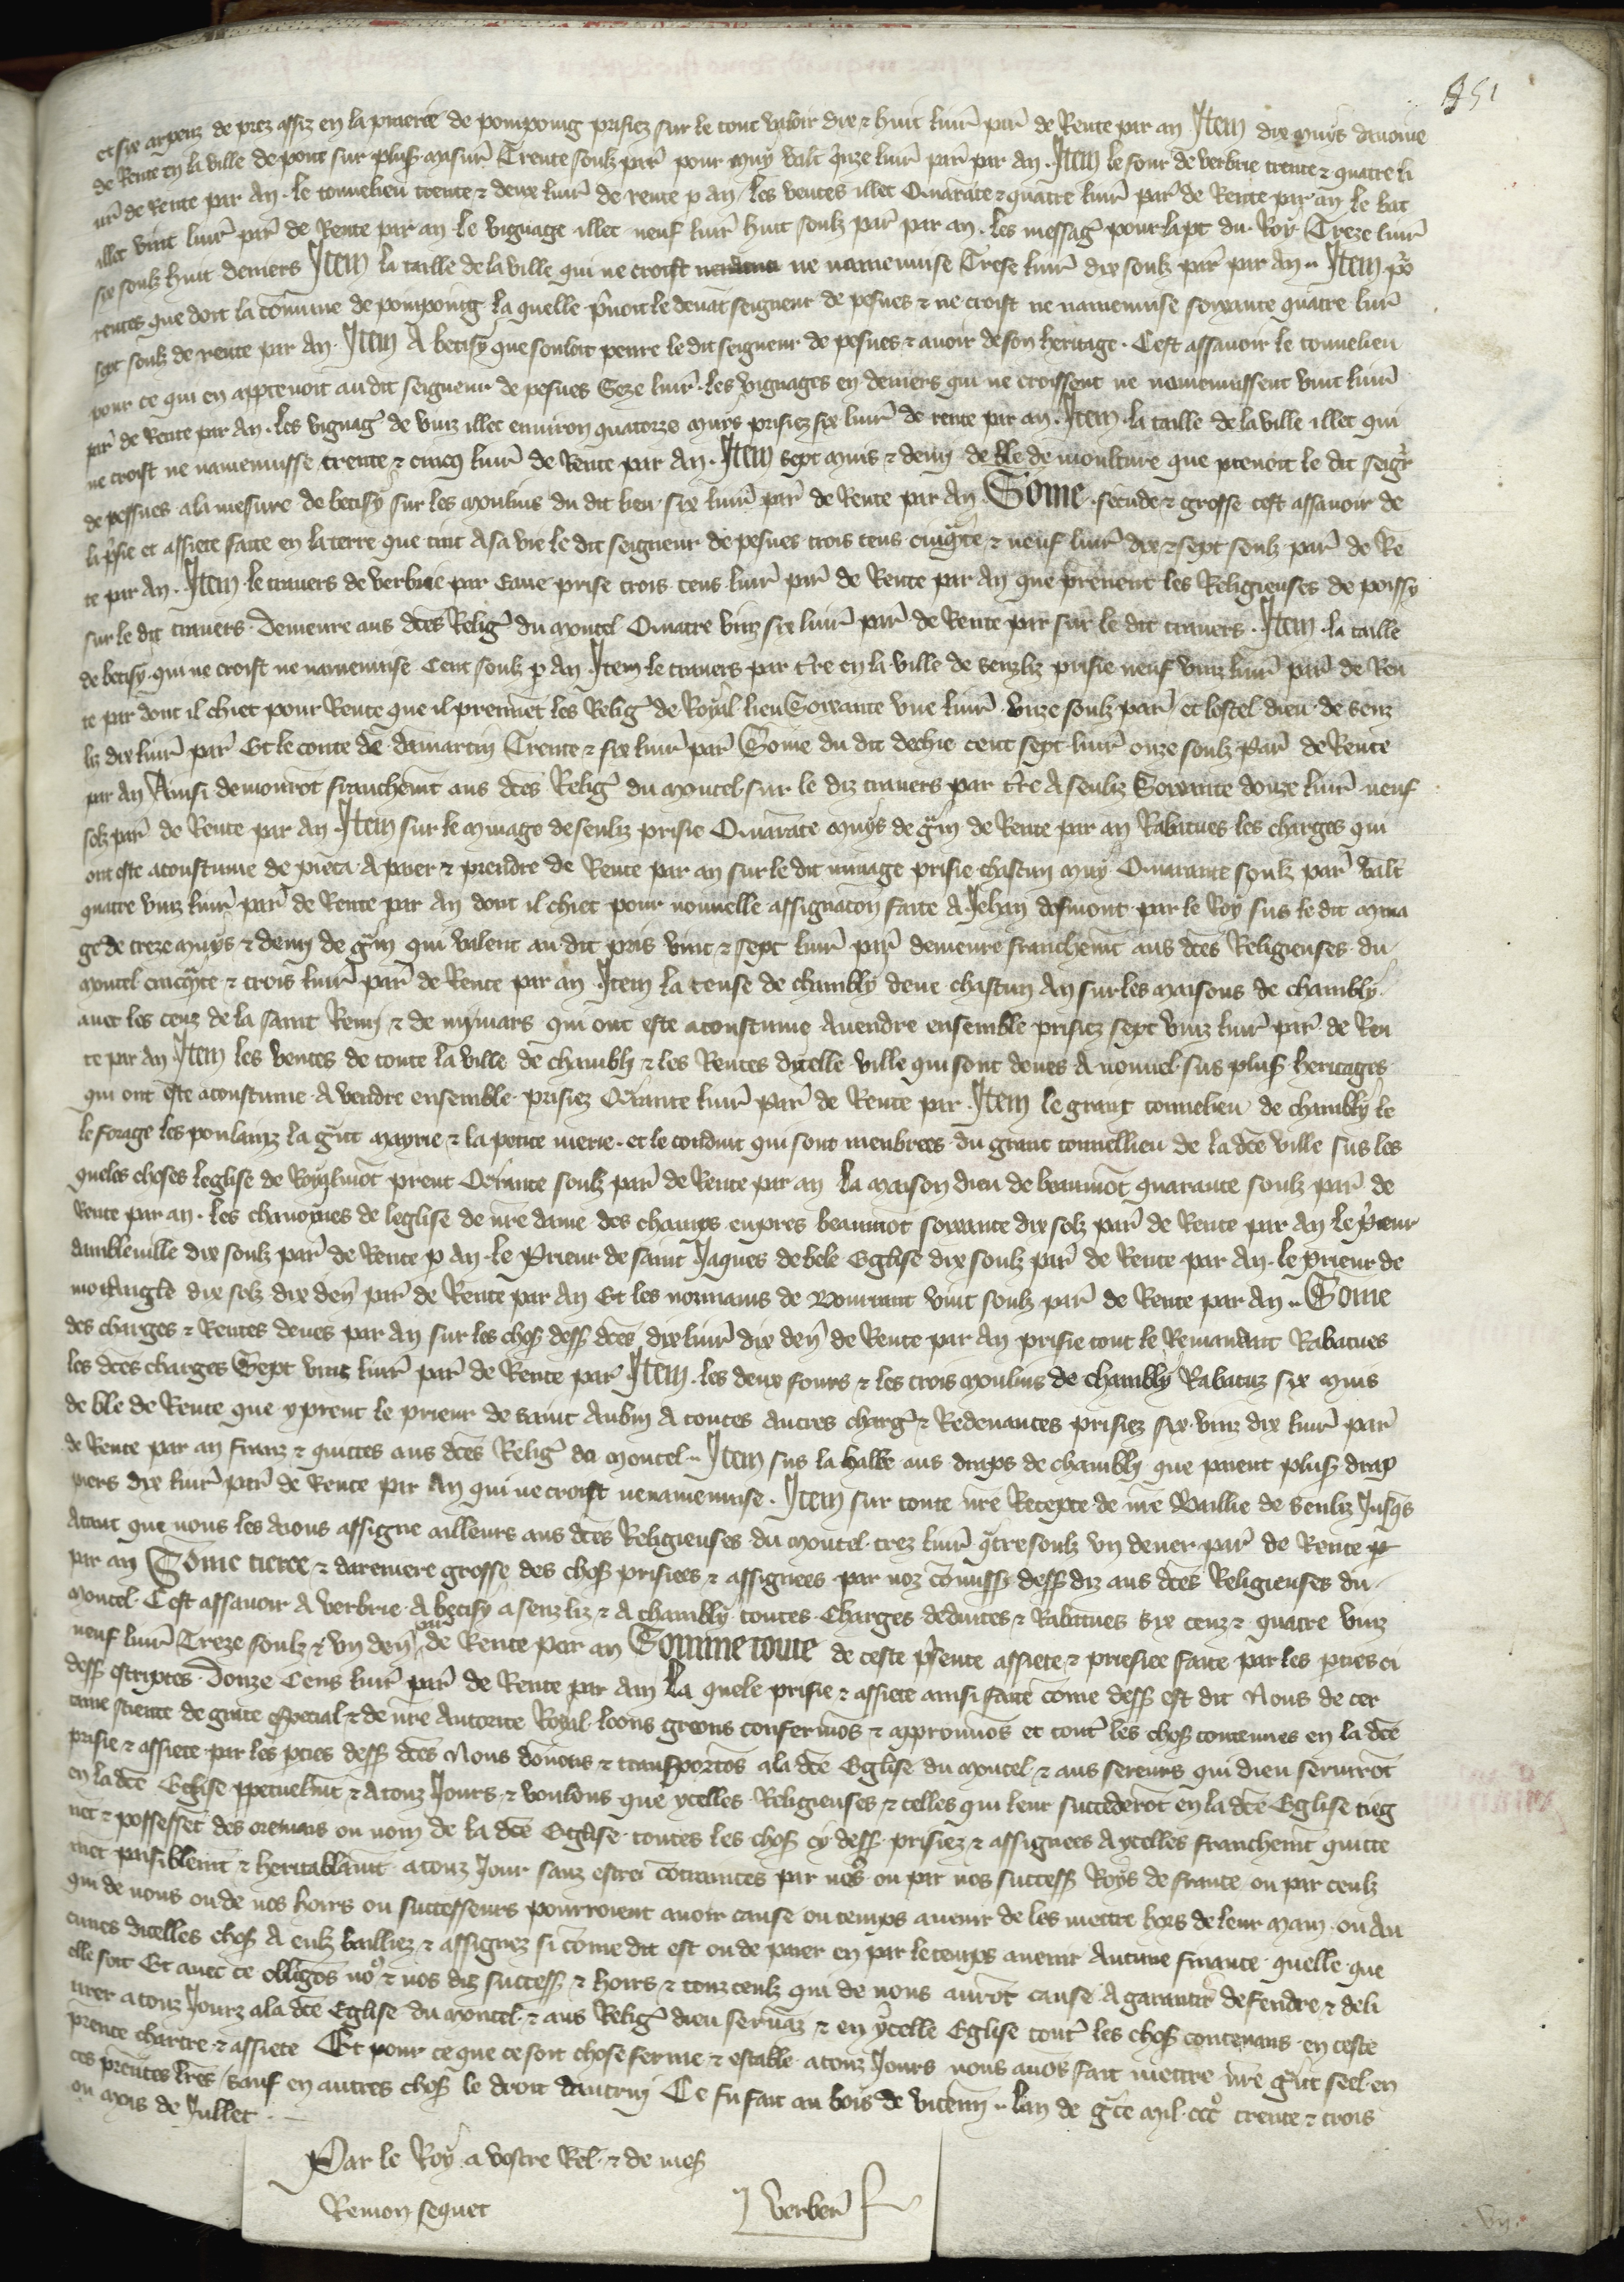 151
et six arpenz de prez assiz en la praerie de pompoing prisiez sur le tout valoir dix & huit livr̄ par̄ de Rente par an Item dix muys davoine
de Rente en la ville de pont sur plus mesur̄ Trente soulz par̄ pour muy valt q̄nze livr̄ par̄ par an . Item le four de verbrie trente & quatre li
ur̄ de Rente par An . le tonnelieu trente & deux livr̄ de rente p an / les ventes illec Quarāte & quatre livr̄ par̄ de Rente par an le bac
illec vint livr̄ par̄ de Rente par an le vignage illec neuf livr̄ huit soulz par̄ par an . les messaḡ pour la pt du Roy Treze livr̄
six soulz huit deniers Item la taille de la ville qui ne croist ne namenuise Trese livr̄ dix soulz par̄ par An .. Item po
rentes que doit la cōmune de pompoing la quelle p̄noit le devāt seigneur de pesnes & ne croist ne namenuise soixante quatre livr̄
sept soulz de rente par An . Item A betisy que souloit penre le dit seigneur de pesnes & avoir de son heritage . Cest assavoir le tonnelieu
pour ce qui en apptenoit au dit seigneur de pesnes Seze livr̄ . les vignages en deniers qui ne croissent ne namenuissent vint livr̄
par̄ de Rente par An . les vignaḡ de vinz illec environ quatorze muys prisiez six livr̄ de rente par an . Item . la taille de la ville illec qui
ne croist ne namenuisse trente & cincq livr̄ de Rente par An . Item sept muis & demy de ble de moulture que prenoit le dit seigr̄
de pessnes a la mesure de betisy sur les moulins du dit lieu six livr̄ par̄ de Rente par An Sōme . secūde & grosse cest assavoir de
la p̄sie et assiete faite en la terre que tint A sa vie le dit seigneur de pesnes trois cens cinq̄te & neuf livr̄ dix & sept soulz par̄ de Re
te par An . Item le travers de verbrie par Eaue prise trois cens livr̄ par̄ de Rente par An que prenent les Religieuses de poissy
sur le dit travers . demeure aus dc̄es Reliḡ du moncel Quatre vinz six livr̄ par̄ de Rente par sur le dit travers . Item . la taille
de betisy . qui ne croist ne namenuise Cent soulz p An . Item le travers par t̄re en la ville de senzliz prisie neuf vinz livr̄ par̄ de Ren
te par dont il chiet pour Rente que il prennēt les Reliḡ de Royal lieu Soixante vne livr̄ vnze soulz par̄ et lostel dieu de senz
liz dix livr̄ par̄ Et le conte de damartin Trente & six livr̄ par̄ Sōme du dit dechie cent sept livr̄ onze soulz par̄ de Rente
par An Ainsi demourōt franchemēt aus dc̄es Reliḡ du moncel . sur le diz travers par t̄re A senliz Soixante douze livr̄ neuf
solz par̄ de Rente par An . Item sur le minage de senliz prisie Quarāte muys de gr̄in de Rente par an Rabatues les charges qui
ont este acoustume de pieca . A paier & prendre de Rente par an sur le dit minage prisie chascun muy Quarante soulz par̄ valt̄
quatre vinz livr̄ par̄ de Rente par An dont il chiet pour nouvelle assignacōn faite A Jehan desmont . par le Roy sus le dit mina
ge de treze muys & demy de gr̄in qui valent au dit pris vint & sept livr̄ par̄ demeure franchemēt aus dc̄es Religieuses du
moncel cincq̄te & trois livr̄ par̄ de Rente par an Item la tense de chambly deue chascun An sur les maisons de chambly
avec les cenz de la saint Remy & de mymars qui ont este acoustume A vendre ensemble prisiez sept vinz livr̄ par̄ de Ren
te par An . Item les ventes de toute la ville de chambly & les Rentes dicelle ville qui sont deues A nouuel sus plus̄ heritages
qui ont este acoustume . A vendre ensemble . prisiez Qr̄ante livr̄ par̄ de Rente par . Item le grant tonnelieu de chambly le
le forage les poulainz la gr̄nt mayrie & la petite merie . et le conduit qui sont menbrees du grant tonnellieu de la dc̄e ville sus les
queles choses leglise de Roylmōt prent Qr̄ante soulz par̄ de Rente par an la maison dieu de beaumōt quarante soulz par̄ de
Rente par an . les chanoynes de leglise de nr̄e dame des champs enpres beaumōt soixante dix solz par̄ de Rente par An le p̄eur
dambleville dix soulz par̄ de Rente p An . le Prieur de saint Jaques de bele Eglise dix soulz par̄ de Rente par An . le prieur de
mortangle dix solz dix den̄ par̄ de Rente par An Et les nonnains de Bourrant vint soulz par̄ de Rente par An .. Sōme
des charges & Rentes deues par An sur les chos̄ dess̄ dc̄es dix livr̄ dix den̄ de Rente par An prisie tout le Remanant Rabatues
les dc̄es charges Sept vinz livr̄ par̄ de Rente par̄ Item . les deux fours & les trois moulins de chambly Rabatuz six muis
de ble de Rente que y prent le prieur de saint Aubin A toutes autres charḡ & Redevances prisiez six . vinz dix livr̄ par̄
de Rente par an franz & quittes aus dc̄es Reliḡ du moncel .. Item sus la halle aus draps de chambly que paient plus̄ drap
piers dix livr̄ par̄ de Rente par An qui ne croist ne namenuise . Item sur toute nr̄e Recepte de nr̄e Baillie de senliz Jusq̄s
Atant que nous les aions assigne ailleurs aus dc̄es Religieuses du moncel . trez livr̄ q̄tre soulz vn denier par̄ de Rente p
par an Sōme tierce & dareniere grosse des chos̄ prisiees & assignees par noz cōmiss̄ dess̄ diz aus dc̄es Religieuses du
moncel . Cest assavoir A verbrie . A betisy A senzliz & A chambly toutes . Charges deduites & Rabatues Six cenz & quatre vinz
neuf livr̄ Treze soulz & vn den̄ par̄ de Rente par an Somme toute de ceste p̄sente assiete & prisiee faite par les pties ci
dess̄ escriptes . Douze Cens livr̄ par̄ de Rente par An La quele prisie & assiete ainsi faite cōme dess̄ est dit Nous de cer
taine science de grace especial & de nr̄e Autorite Royal . loons greons confermōs & approuvōs et tout̄ les chos̄ contenues en la dc̄e
prisie & assiete par les pties dess̄ dc̄es Nous donnons & transportōs a la dc̄e Eglise du moncel & aus sereurs qui dieu servirōt
en la dc̄e Eglise ppetuelmēt & A touz Jours & voulons que ycelles Religieuses & celles qui leur succederōt en la dc̄e Eglise tieg
nēt & possessēt des orenavās ou nom de la dc̄e Eglise toutes les chos̄ cy dess̄ prisiez & assignees A ycelles franchemēt quitte
mēt paisiblemēt & heritablemēt atouz Jour sanz estre contraintes par no9 ou par nos success̄ Roys de france ou par ceulz
qui de nous ou de nos hoirs ou successeurs pourroient avoir cause ou temps avenir de les mettre hors de leur main . ou Au
cunes dicelles chos̄ A eulz bailliez & assignez si cōme dit est ou de paier en par le temps avenir Aucune finance quelle que
elle soit Et avec ce obligōs no9 & nos diz success̄ & hoirs & touz ceulz qui de nous aurōt cause A garantir defendre & deli
vrer a touz Jourz a la dc̄e Eglise du moncel & aus Reliḡ dieu servāz & en ycelle Eglise tout̄ les chos̄ contenans en ceste
pr̄ente chartre & assiete Et pour ce que ce soit chose ferme & estable atouz Jours nous avōs fait mettre nr̄e gr̄nt seel en
ces pr̄entes lr̄es / Sauf en autres chos̄ le droit dautruy Ce fu fait au bois de vicenn̄ .. lan de gr̄ce mil . ccco trente & trois
ou mois de Jullet . —
Par le Roy a vostre Rel . & de mes̄
Remon seguet
J verber̄